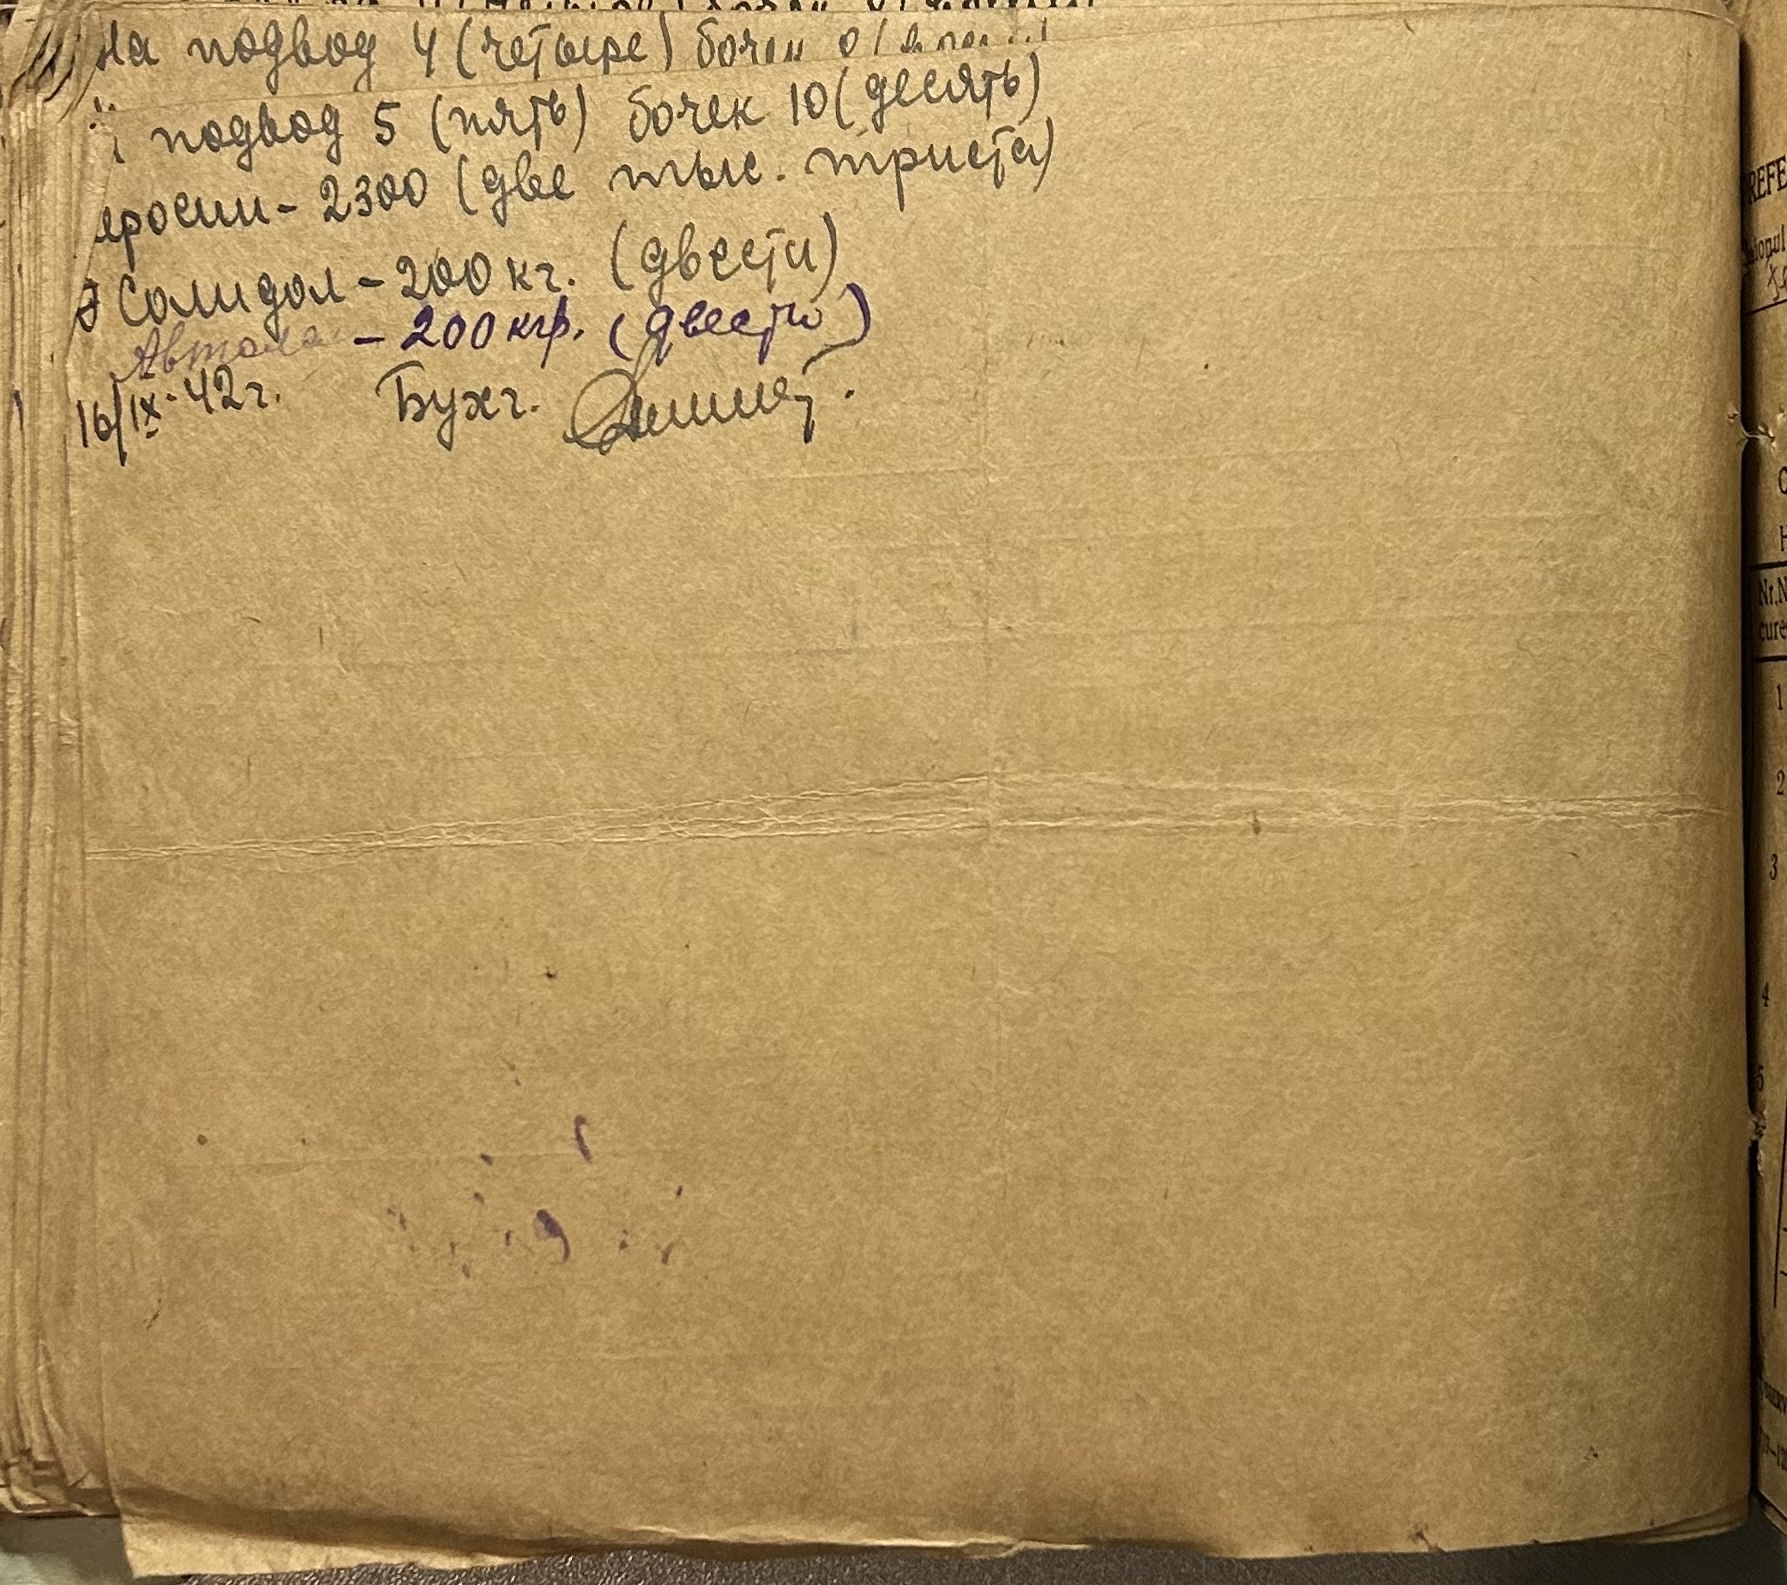 на подвод 4 (четыре) бочек
подвод 5 (пять) бочек 10 (десять)
еросин - 2300 (две тыс. триста)
Солидол - 200 кг. (двести)
Автола - 200 кгр. (двести)
16/IX-42 г. Бухг.
REFE
Nr.N
cure
1
2
3
4
5